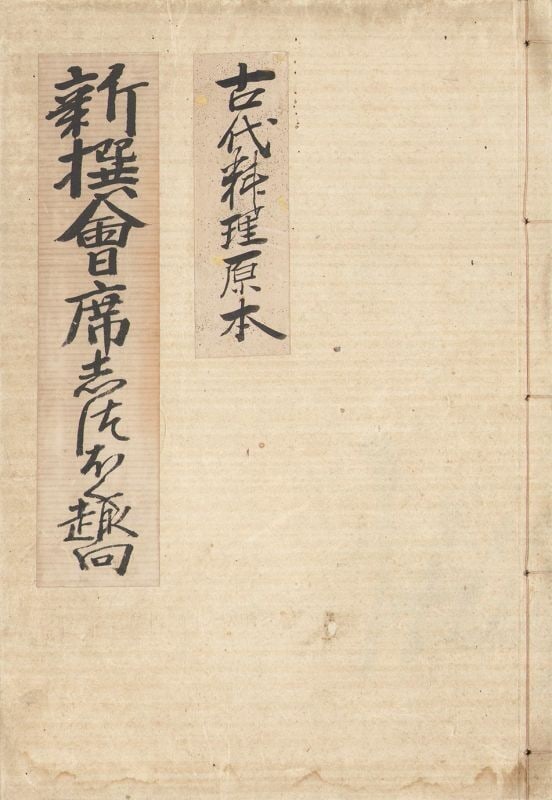 古代料理原本
新撰會席志津本く趣向